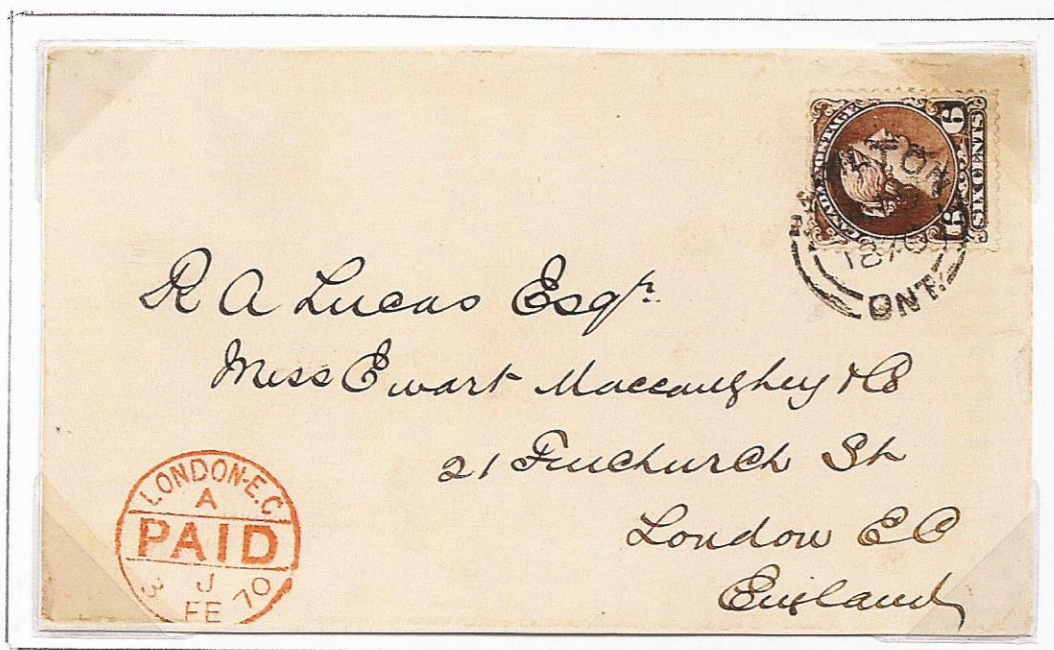 CANADA POSTAGE
6 6
SIX CENTS
LTON
1870
ONT.
R A Lucas Esqr.
Mess Ewart Maccaughey & Co
21 Fenchurch St
London E C
England
LONDON-E.C
A
PAID
J
3 FE 70